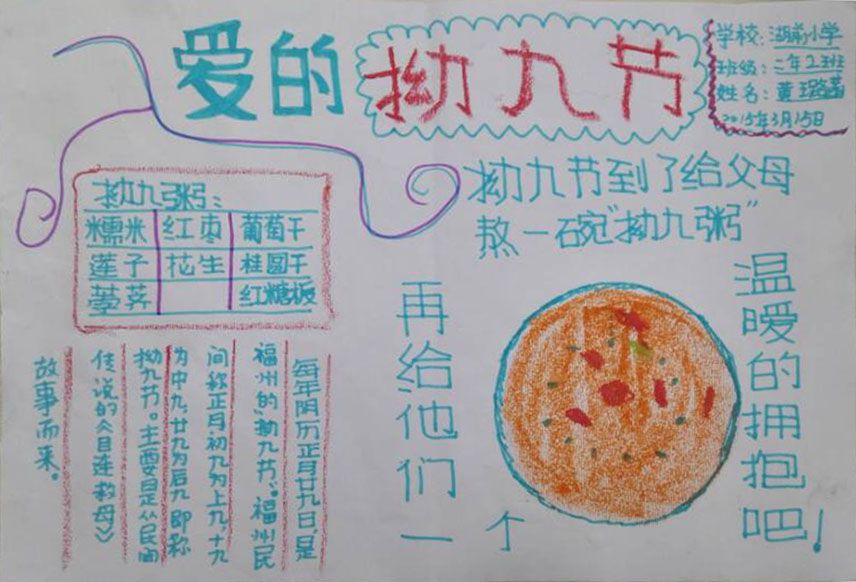 爱的拗九节
学校：湖前小学
班级：二年2班
姓名：黄
2015年3月15日
拗九节到了给父母
熬一碗"拗九粥"
再给他们一个
温暖的拥抱吧！
拗九粥：
糯米 红枣 葡萄干
莲子 花生 桂圆干
荸荠 红糖板
每年阴历正月廿九日，是
福州的"拗九节"。福州民
间称正月初九为上九，十九
为中九，廿九为后九即称
拗九节。主要是从民间
传说的《目连救母》
故事而来。